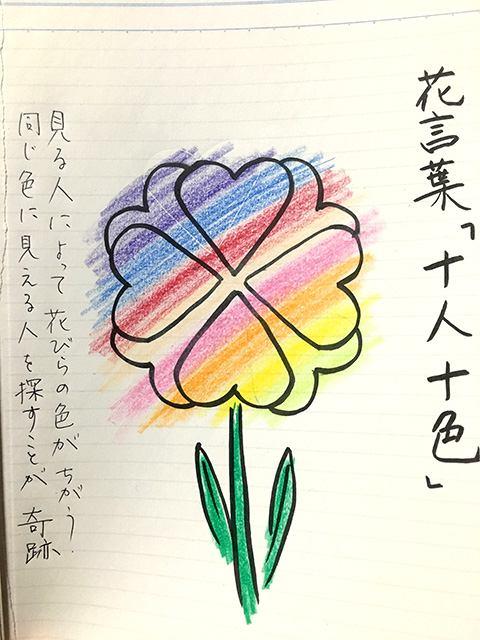 花言葉「十人十色」
見る人によって花びらの色がちがう.
同じ色に見える人を探すことが奇跡